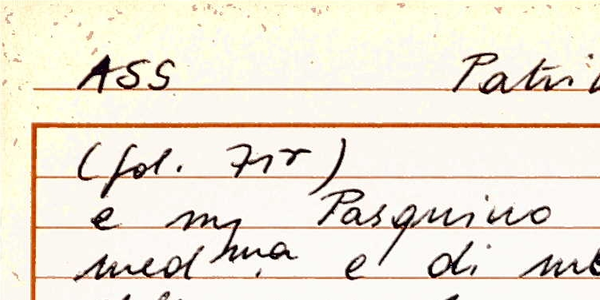 ASS Patri
(fol. 71r)
e mº Pasquino
medma. e di